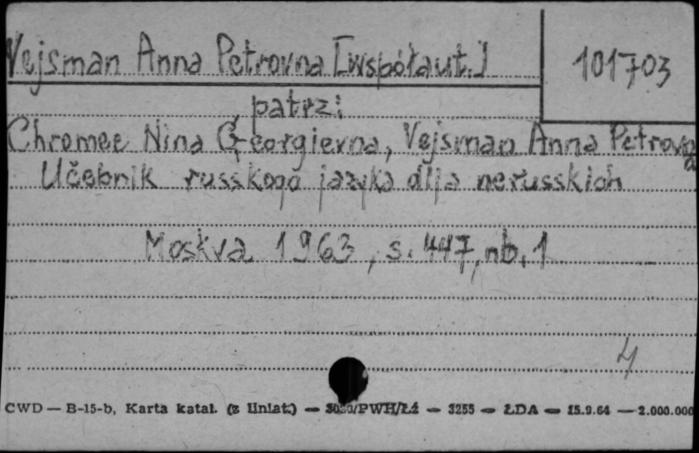 Vejsman Anna Petrovna [współaut.]
101703
patrz:
Chromec Nina Georgievna, Vejsman Anna Petrovna
Učebnik russkogo jazyka dlja nerusskich
Moskva 1963, s. 447, nb. 1
4
CWD — B-15-b, Karta katal. (z liniat.) — /PWH/Łź — 3255 — ŁDA — 15.9.64 — 2.000.000